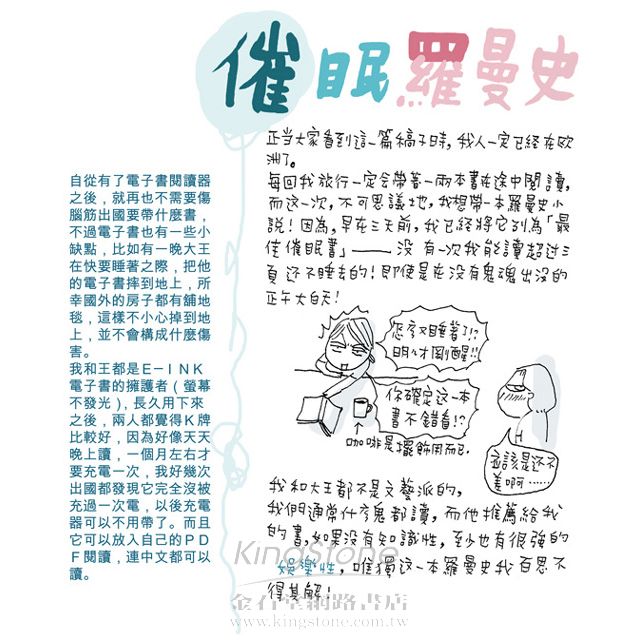 催眠羅曼史
正當大家看到這一篇稿子時，我人一定已経在欧
洲了。
每回我旅行一定会帶著一兩本書在途中閱讀，
而这一次，不可思議地，我想帶一本羅曼史小
說！因為，早在三天前，我已経將它列為「最
佳催眠書」——没有一次我能讀超过三
頁还不睡去的！即使是在没有鬼魂出没的
正午大白天！
自從有了電子書閱讀器
之後，就再也不需要傷
腦筋出國要帶什麼書，
不過電子書也有一些小
缺點，比如有一晚大王
在快要睡著之際，把他
的電子書摔到地上，所
幸國外的房子都有舖地
毯，這樣不小心掉到地
上，並不會構成什麼傷
害。
我和王都是E－INK
電子書的擁護者（螢幕
不發光），長久用下來
之後，兩人都覺得K牌
比較好，因為好像天天
晚上讀，一個月左右才
要充電一次，我好幾次
出國都發現它完全沒被
充過一次電，以後充電
器可以不用帶了。而且
它可以放入自己的PD
F閱讀，連中文都可以
讀。
怎麼又睡著了!?
明明才剛醒!!
你確定这一本
書不錯看!?
咖啡是擺飾用而已.
应該是还不
差啊……
我和大王都不是文藝派的，
我們通常什麼鬼都讀，而他推薦給我
的書，如果没有知識性，至少也有很強的
娛樂性，唯獨这一本羅曼史我百思不
得其解！
KingStone
金石堂網路書店
www.kingstone.com.tw